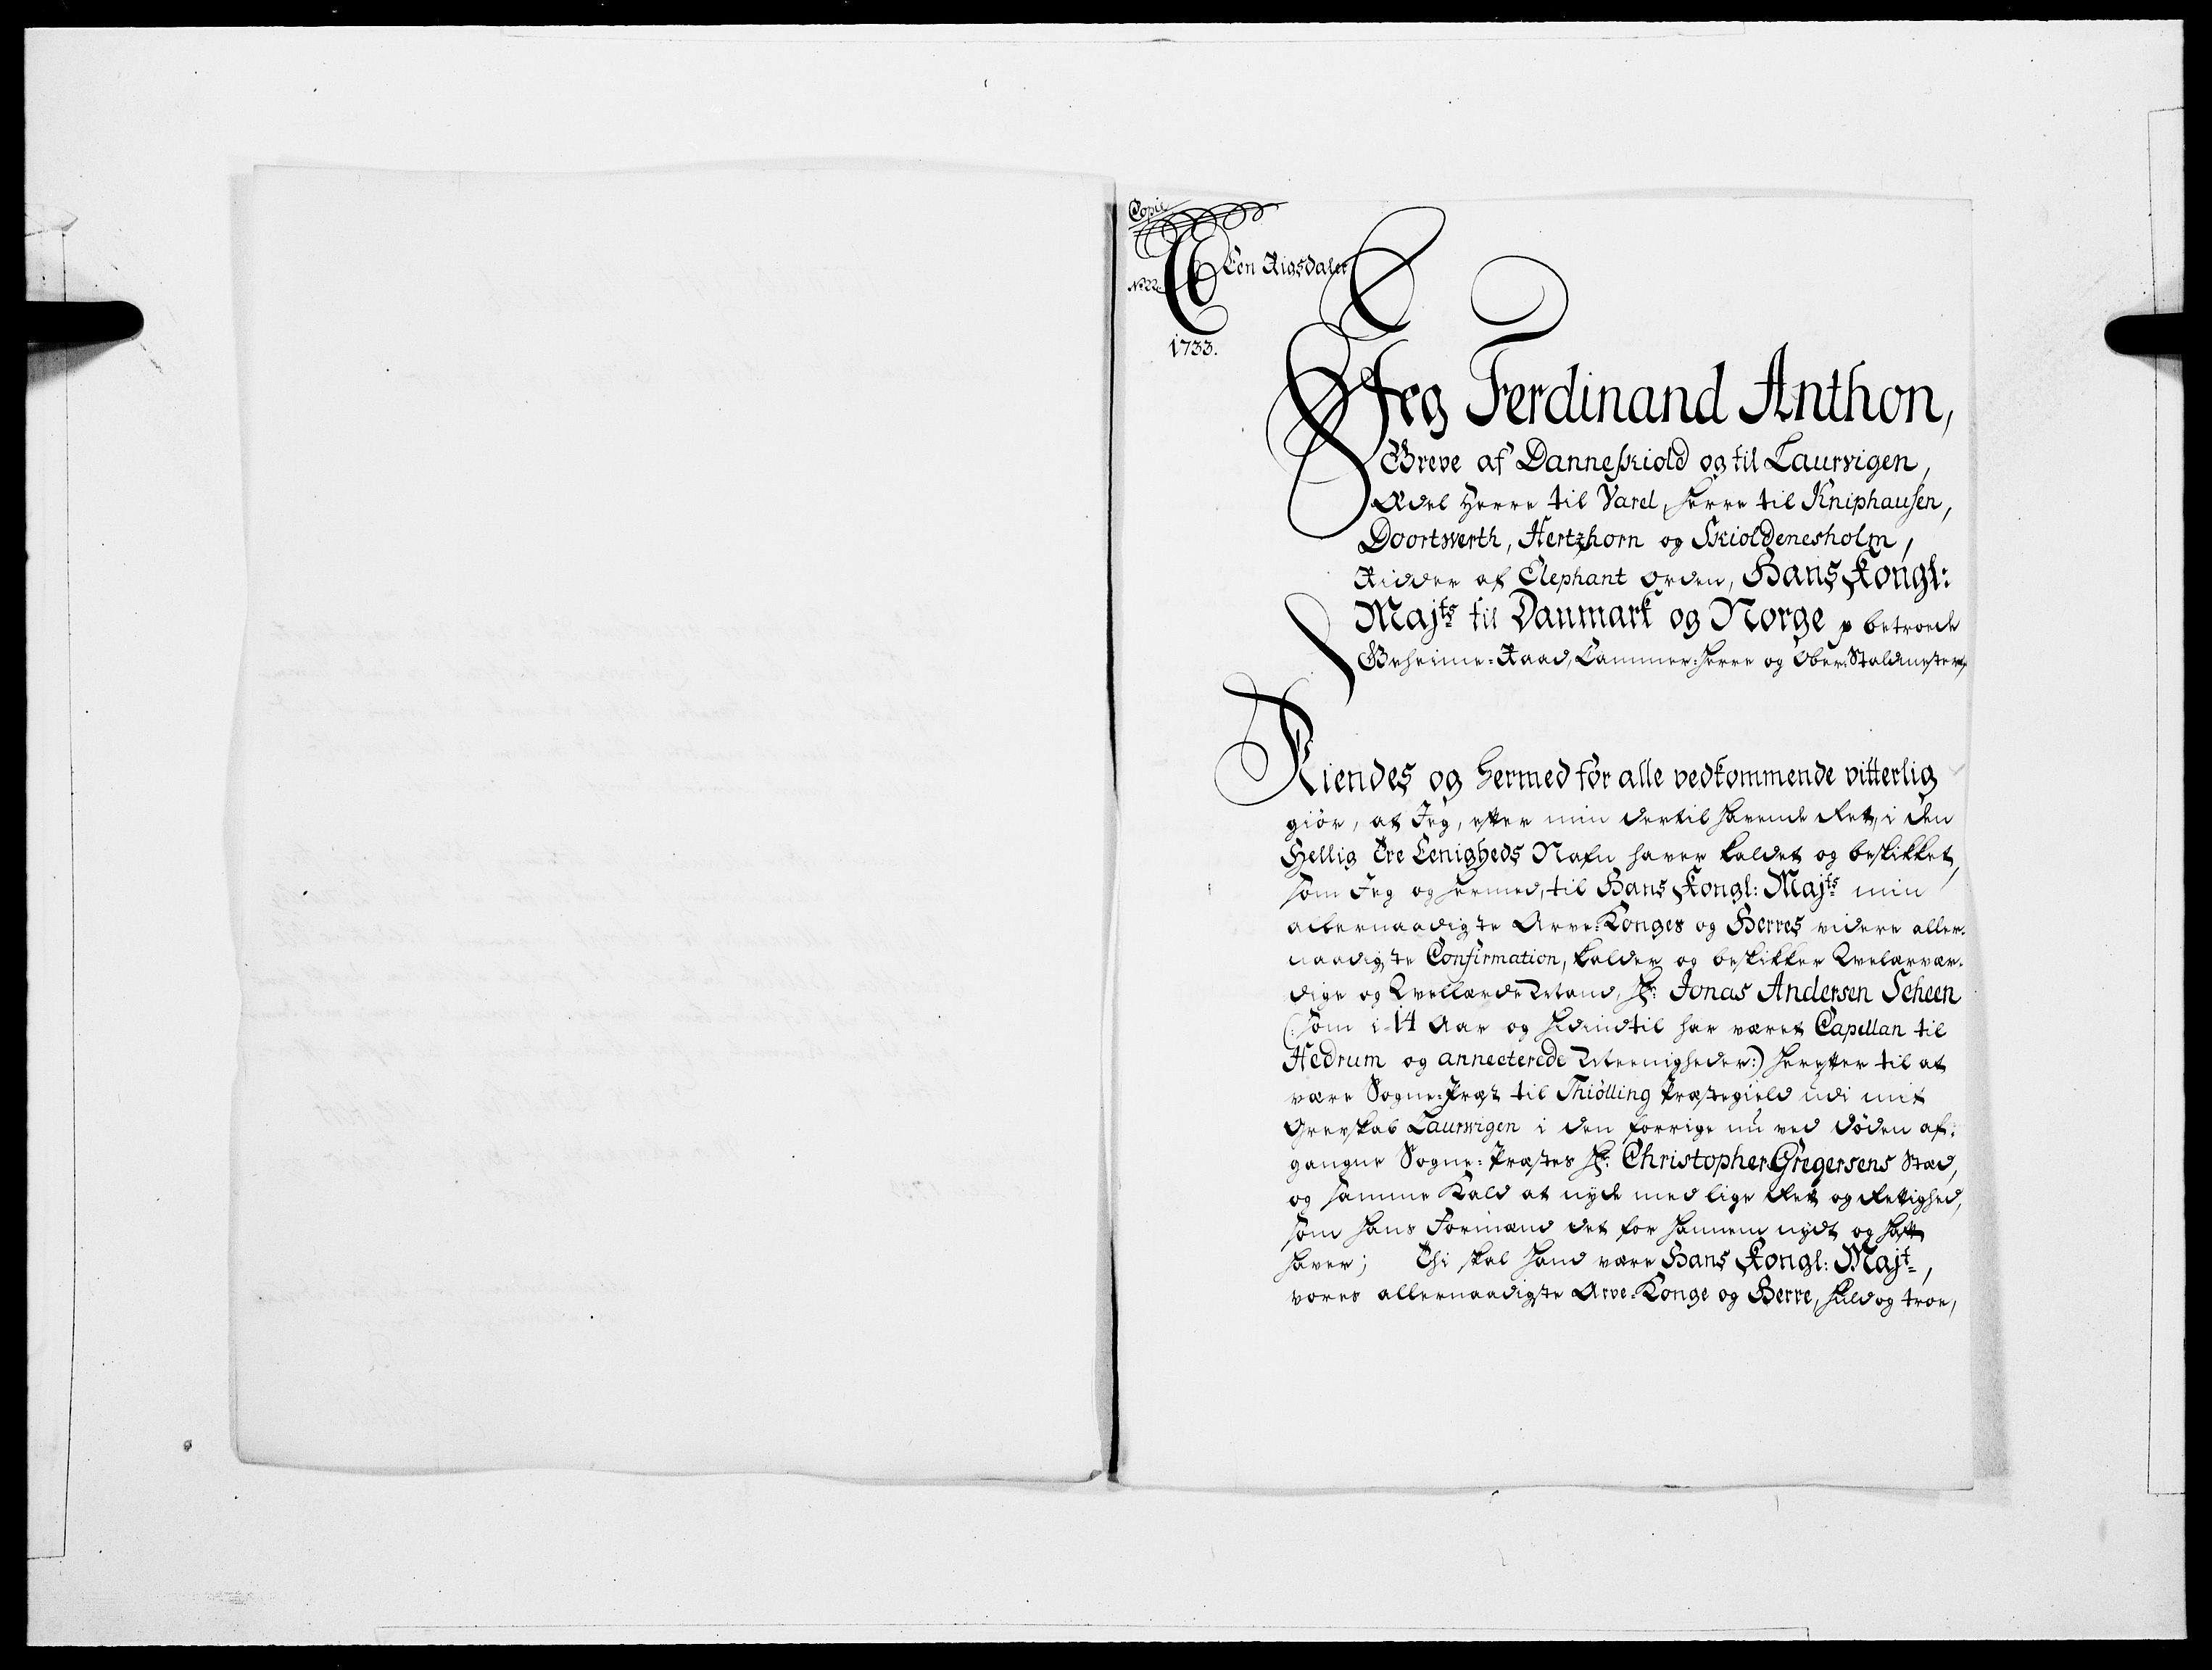 Copie
No 22.
Een Rigsdaler
1733.
Jeg Ferdinand Anthon,
Greve af Danneskiold og til Laurvigen,
Ædel Herre til Varel, Herre til Kniphausen,
Doortwerth, Hertzhorn og Skioldenesholm,
Ridder af Elephant Orden, Hans Kongl:
Majts til Danmark og Norge p betroede
Geheime-Raad, Cammer-Herre og Ober-Staldmester
Kiendes og hermed for alle vedkommende vitterlig
giør, at Jeg, efter min dertil havende Ret, i den
Hellig Tre Eenigheds Nafn haver kaldet og beskikket,
som Jeg og hermed, til Hans Kongl: Majts min
allernaadigste Arve-Konges og Herres videre aller-
naadigste Confirmation, kalder og beskikker Velærvær-
dige og Vellærde Mand, Hr: Jonas Andersen Scheen
(: som i 14 Aar og hidindtil har været Capellan til
Hedrum og annecterede Meenigheder:) herefter til at
være Sogne-Præst til Thiølling Præstegield udi mit
Grevskab Laurwigen i den forrige nu ved døden af-
gangne Sogne-Præstes Hr: Christopher Gregersens Stæd,
og samme Kald at nyde med lige Ret og Rettighed,
som hans Formænd det for hannem nydt og haft
haver; Thi skal hand være Hans Kongl: Majt,
vores allernaadigste Arve-Konge og Herre, huld og troe,